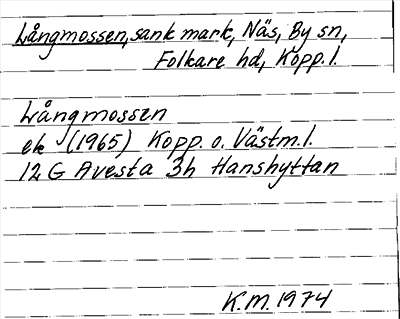 Långmossen, sank mark, Näs, By sn,
Folkare hd, Kopp. l.
Långmossen
ek (1965) Kopp. o. Västm. l.
12 G Avesta 3h Hanshyttan
K.M. 1974